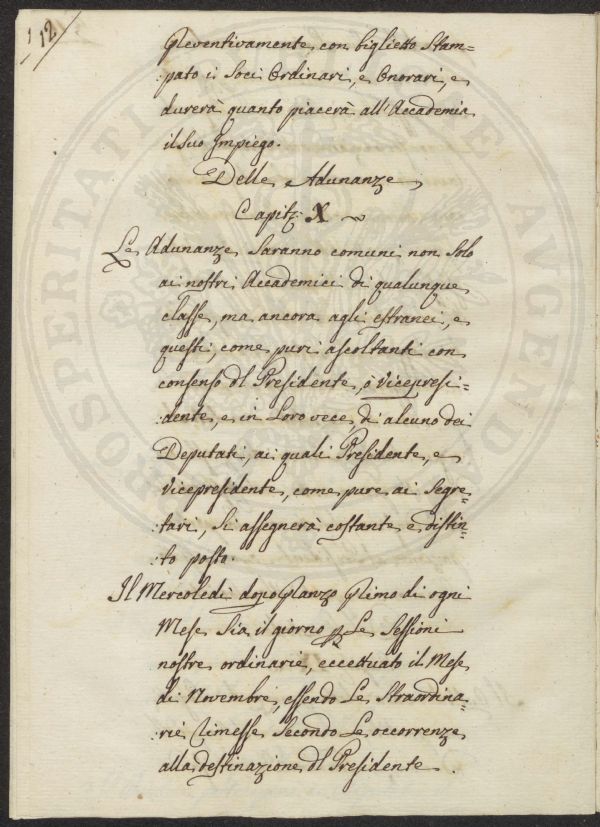 12
Preventivamente con biglietto stam=
:pato i Soci Ordinari, e Onorari, e
durerà quanto piacerà all'Accademia
il suo Impiego.
Delle Adunanze
Capit: X
Le Adunanze saranno comuni non solo
ai nostri Accademici di qualunque
classe, ma ancora agli estranei, e
questi, come puri ascoltanti con
consenso dl Presidente, ò Vicepresi=
:dente, e in loro vece, di alcuno dei
Deputati, ai quali Presidente, e
Vicepresidente, come pure ai Segre=
:tari, si assegnerà costante e distin=
:to posto.
Il Mercoledì dopo Pranzo Primo di ogni
Mese sia il giorno p le sessioni
nostre ordinarie, eccettuato il Mese
di Novembre, essendo le straordina=
:rie rimesse secondo le occorrenze
alla destinazione dl Presidente.
PROSPERITATI PUBLICAE AUGENDAE